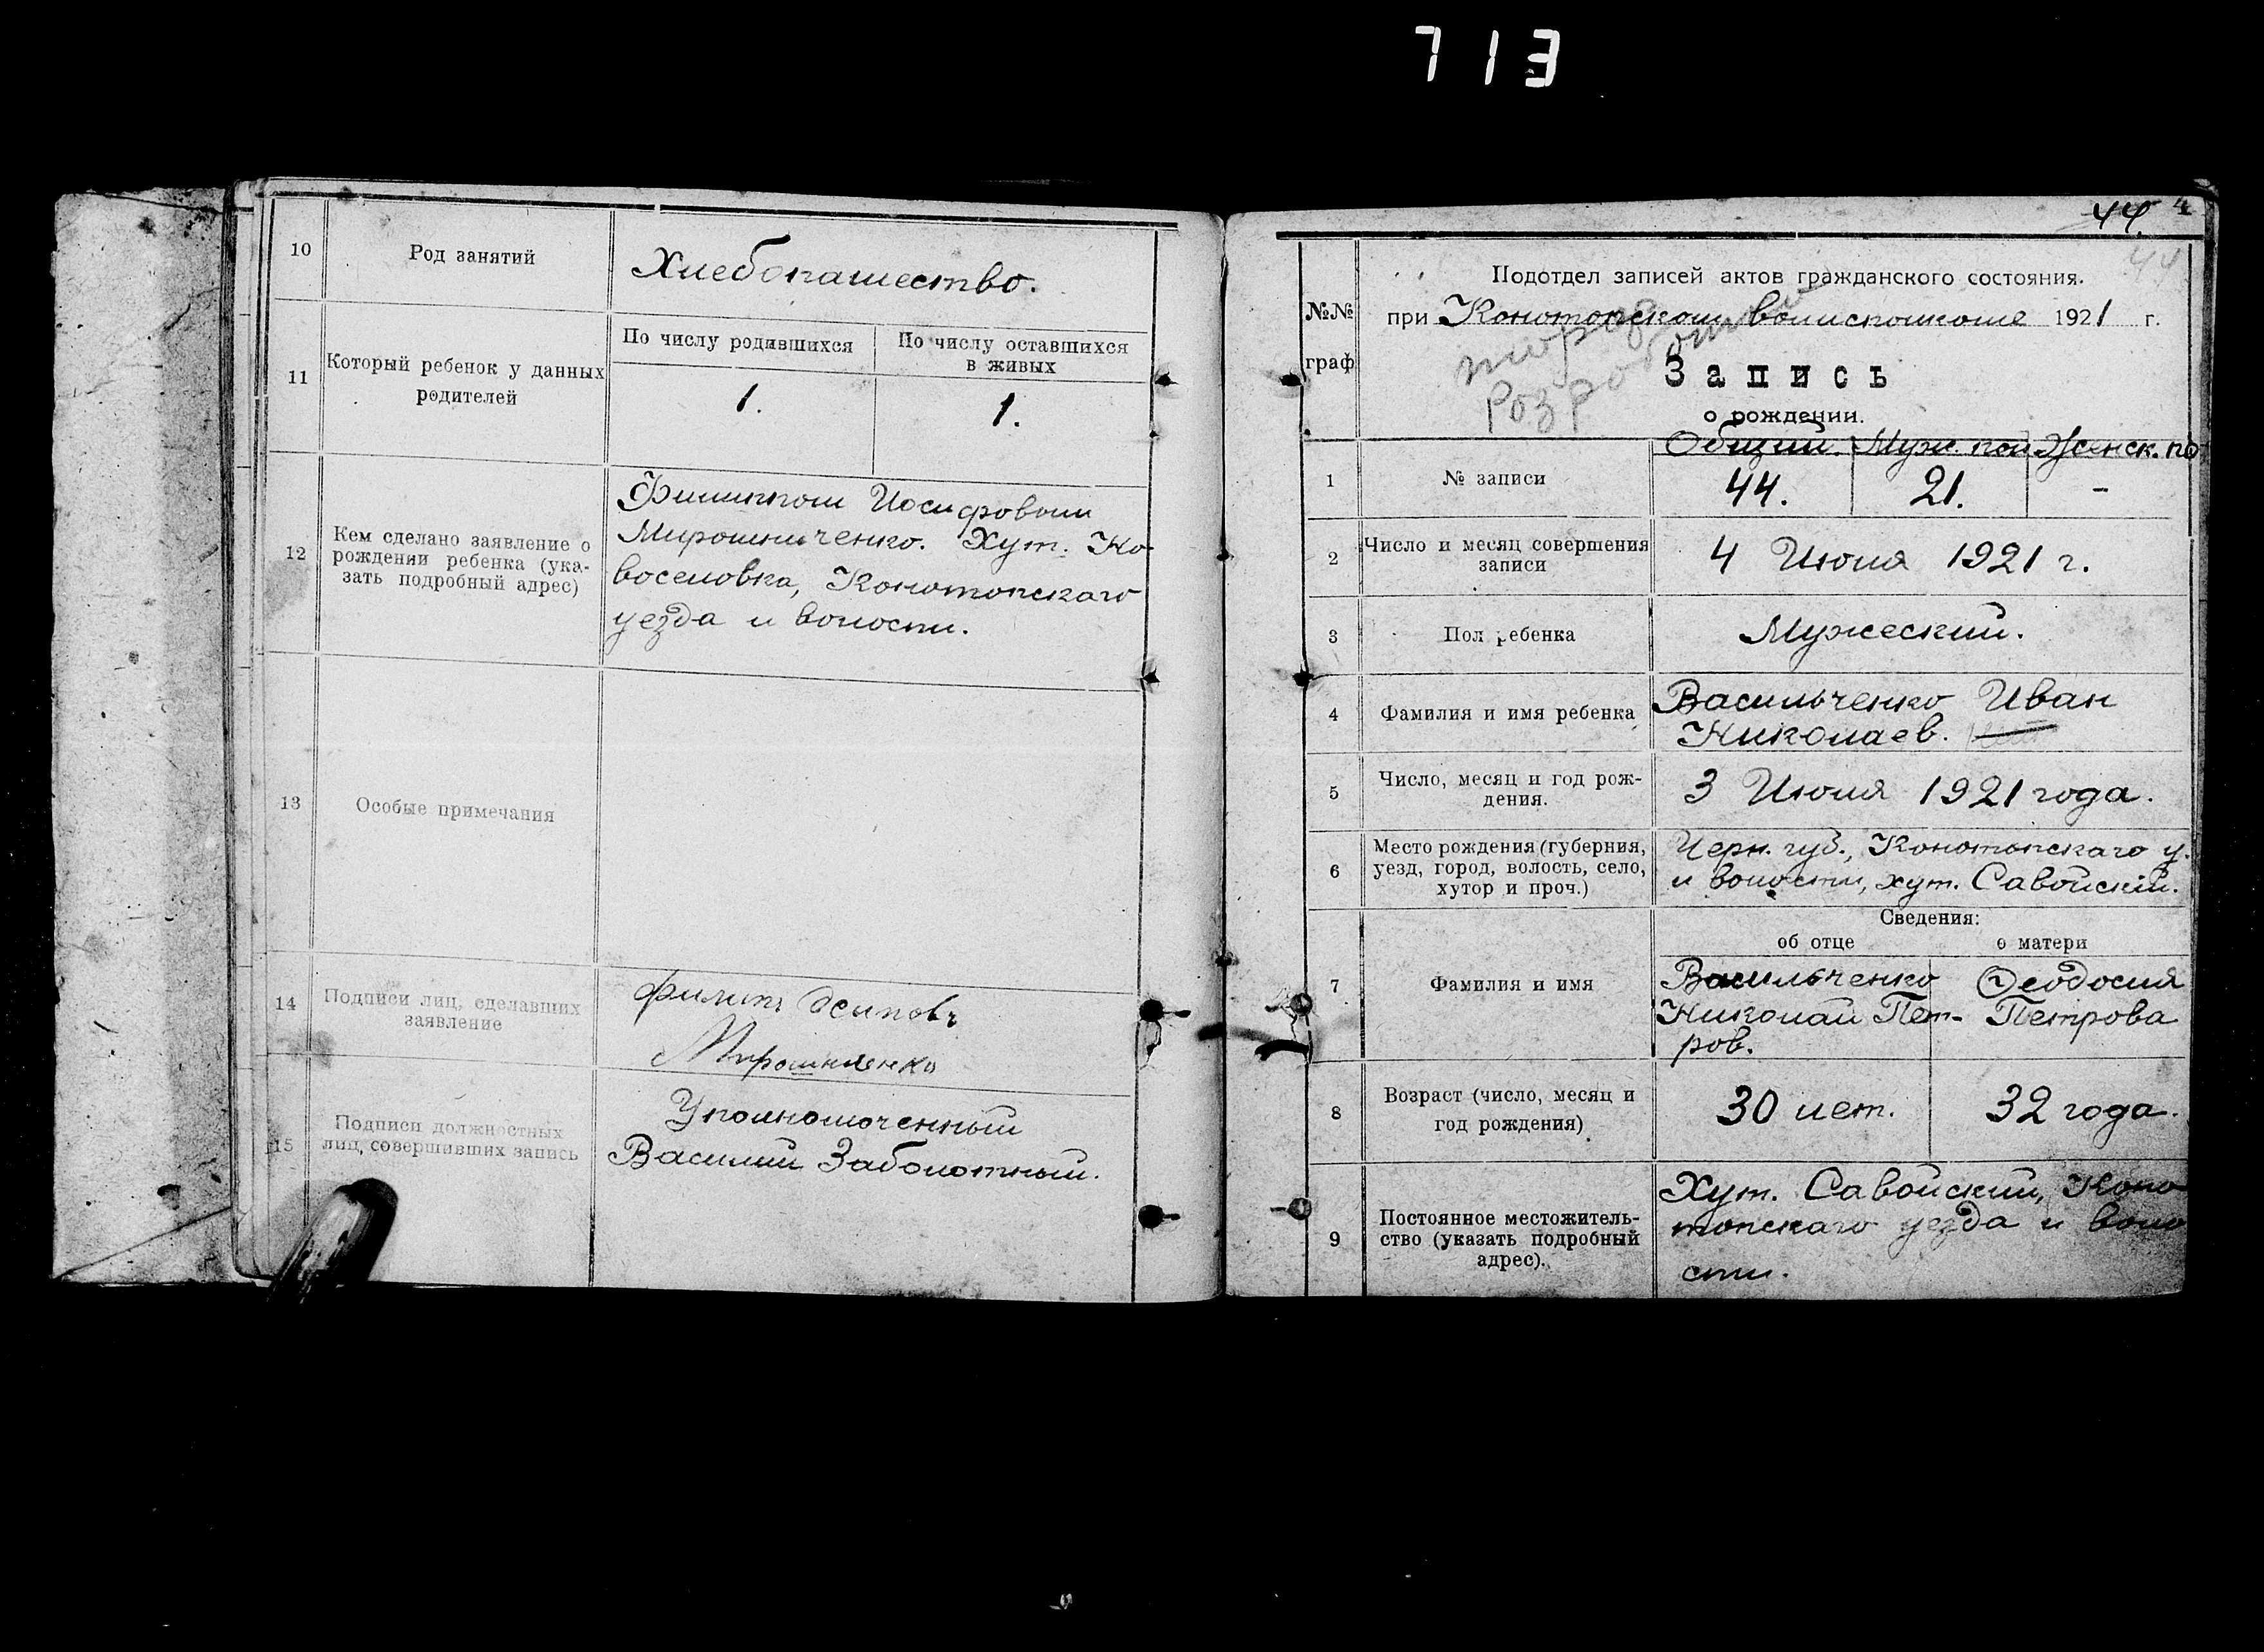 713
10
Род занятий
Хлебопашество.
11
Который ребенок у данных
родителей
По числу родившихся
По числу оставшихся
в живых
1.
1.
12
Кем сделано заявление о
рождении ребенка (ука-
зать подробный адрес)
Филиппом Иосифовым
Мирошниченко. Хут. Но-
воселовка, Конотопскаго
уезда и волости.
13
Особые примечания
14
Подписи лиц, сделавших
заявление
Филипъ Осиповъ
15
Подписи должностных
лиц, совершивших запись
Уполномоченный
Василий Заболотный.
44.
44
№№
граф
Подотдел записей актов гражданского состояния.
при Конотопском волисполкоме 1921 г.
Запись
о рождении.
Общий. Муж. пол Женск. по
1
№ записи
44.
21.
-
2
Число и месяц совершения
записи
4 Июня 1921 г.
3
Пол ребенка
Мужеский.
4
Фамилия и имя ребенка
Васильченко Иван
Николаев.
5
Число, месяц и год рож-
дения.
3 Июня 1921 года.
6
Место рождения (губерния,
уезд, город, волость, село,
хутор и проч.)
Черн. губ., Конотопскаго у.
и волости, хут. Савойский.
Сведения:
об отце
о матери
7
Фамилия и имя
Васильченко
Николай Пет-
ров.
Феодосия
Петрова
8
Возраст (число, месяц и
год рождения)
30 лет.
32 года.
9
Постоянное местожитель-
ство (указать подробный
адрес).
Хут. Савойский, Коно
топскаго уезда и воло
сти.